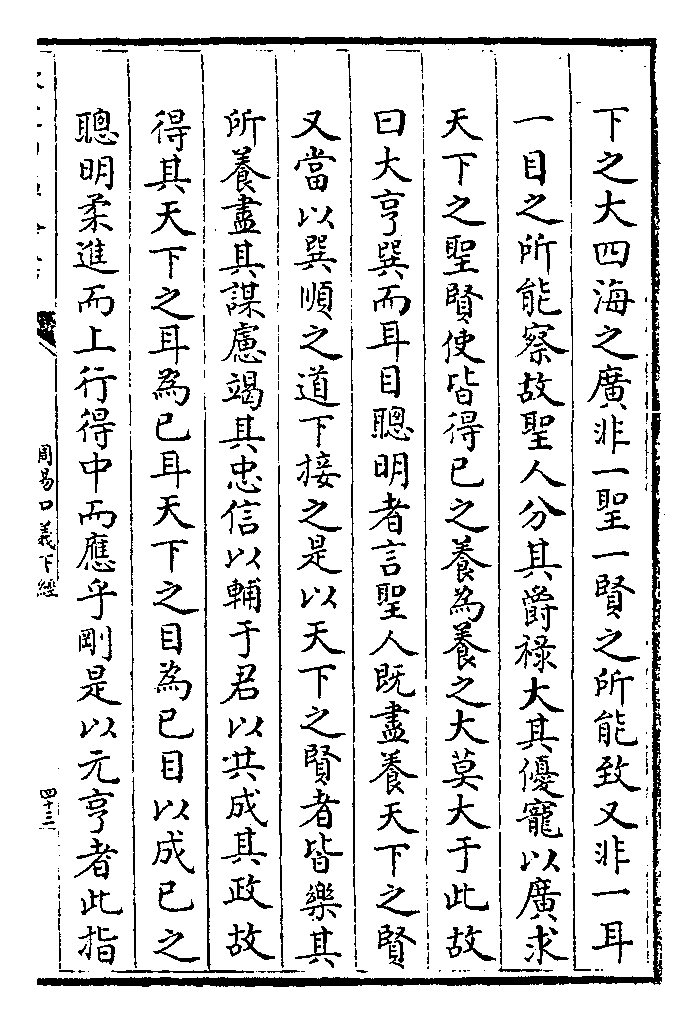 下之大四海之廣非一聖一賢之所能致又非一耳
一目之所能察故聖人分其爵祿大其優寵以廣求
天下之聖賢使皆得已之養為養之大莫大于此故
曰大亨巽而耳目聰明者言聖人既盡養天下之賢
又當以巽順之道下接之是以天下之賢者皆樂其
所養盡其謀慮竭其忠信以輔于君以共成其政故
得其天下之耳為已耳天下之目為已目以成已之
聰明柔進而上行得中而應乎剛是以元亨者此指
周易口義下經
四十三